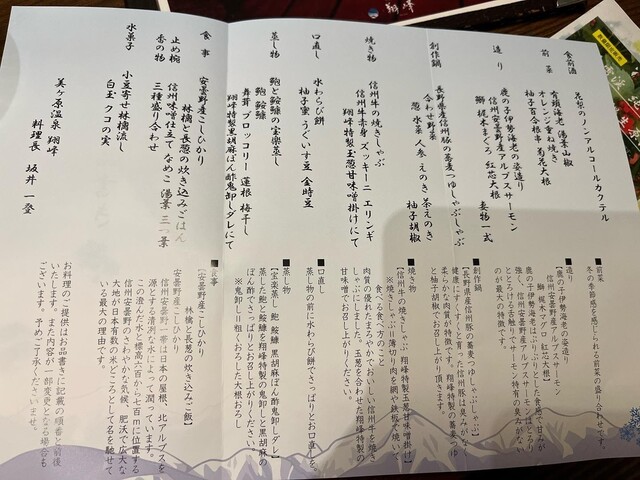 翔峰
食前酒
花梨のノンアルコールカクテル
前菜
有頭海老 湯葉山椒
オレンジ重ね焼き
柚子百合根串 菊花大根
造り
鹿の子伊勢海老の姿造り
信州安曇野産アルプスサーモン
鰤 梶木まぐろ 紅芯大根 妻物一式
創作鍋
長野県産信州豚の蕎麦つゆしゃぶしゃぶ
合わせ野菜
葱 水菜 人参 えのき 茶えのき
柚子胡椒
焼き物
信州牛の焼きしゃぶ
信州牛赤身 ズッキーニ エリンギ
翔峰特製玉葱甘味噌掛けにて
口直し
水わらび餅
柚子蜜 うぐいす豆 金時豆
蒸し物
鮑と鮟鱇の宝楽蒸し
鮑 鮟鱇
舞茸 ブロッコリー 蓮根 梅干し
翔峰特製黒胡麻ぽん酢鬼卸しダレにて
食事
安曇野産こしひかり
林檎と長葱の炊き込みごはん
止め椀
信州味噌仕立て なめこ 湯葉 三つ葉
香の物
三種盛り合わせ
水菓子
小豆寄せ林檎流し
白玉 クコの実
美ヶ原温泉 翔峰
料理長 坂井 一登
■前菜
冬の季節感を感じられる前菜の盛り合わせです。
■造り
【鹿の子伊勢海老の姿造り
信州安曇野産アルプスサーモン
鰤 梶木マグロ 紅芯大根】
鹿の子伊勢海老はこりっとした食感で甘みが
強く、信州安曇野産アルプスサーモンはとろり
ととろける舌触りでサーモン特有の臭みがない
のが最大の特徴です。
■創作鍋
【長野県産信州豚の蕎麦つゆしゃぶしゃぶ】
健康にすくすくと育った信州豚は臭みがなく
柔らかな肉質が特徴です。翔峰特製の蕎麦つゆ
と柚子胡椒でお召し上がり頂きます。
■焼き物
【信州牛の焼きしゃぶ 翔峰特製玉葱甘味噌掛け】
※焼きしゃぶ＝薄切り肉を鍋や鉄板で焼いて
食べる食べ方のこと
肉質の優れたまろやかでおいしい信州牛を焼き
しゃぶにしました。玉葱を合わせた翔峰特製の
甘味噌でお召し上がりください。
■口直し
蒸し物の前に水わらび餅でさっぱりとお口直しを。
■蒸し物
【宝楽蒸し 鮑 鮟鱇 黒胡麻ぽん酢鬼卸しダレ】
蒸した鮑と鮟鱇を翔峰特製の鬼卸しと黒胡麻の
ぽん酢でさっぱりとお召し上がりください。
※鬼卸し＝粗くおろした大根おろし
■食事
【安曇野産こしひかり
林檎と長葱の炊き込みご飯】
安曇野産こしひかり
信州安曇野一帯は日本の屋根、北アルプスを
源とする清冽な水によって潤っています。
この澄んだ水と標高六百から七百mに位置する
信州安曇野のさわやかな気候、肥沃で広大な
大地が日本有数の米どころとして名を馳せて
いる最大の理由です。
お料理のご提供はお品書きに記載の順番と前後
いたします。また内容が一部変更となる場合も
ございます。予めご了承くださいませ。